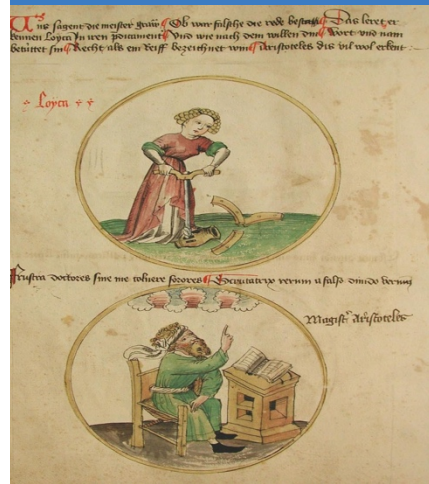 Uns sagent die meister graw Ob war falsche die rede bestang Das leret er
kennen Loyca In iren Vnd wie nach dem willen din Wort vnd nam
betütet sin Recht als ein Reiff bezeichnet win Aristoteles dis vil wol erkent
Loyca
Frustra doctores sine me coluere sorores verum a falso diuido verum
Magistr Aristoteles